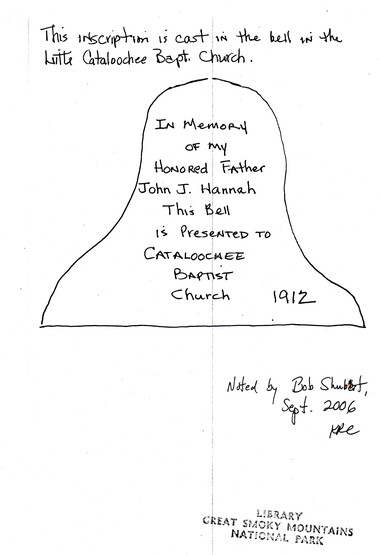 This inscription is cast in the bell in the
Little Cataloochee Bapt. Church.
In Memory
of my
Honored Father
John J. Hannah
This Bell
is Presented to
Cataloochee
Baptist
Church 1912
Noted by Bob
Sept. 2006
LIBRARY
GREAT SMOKY MOUNTAINS
NATIONAL PARK